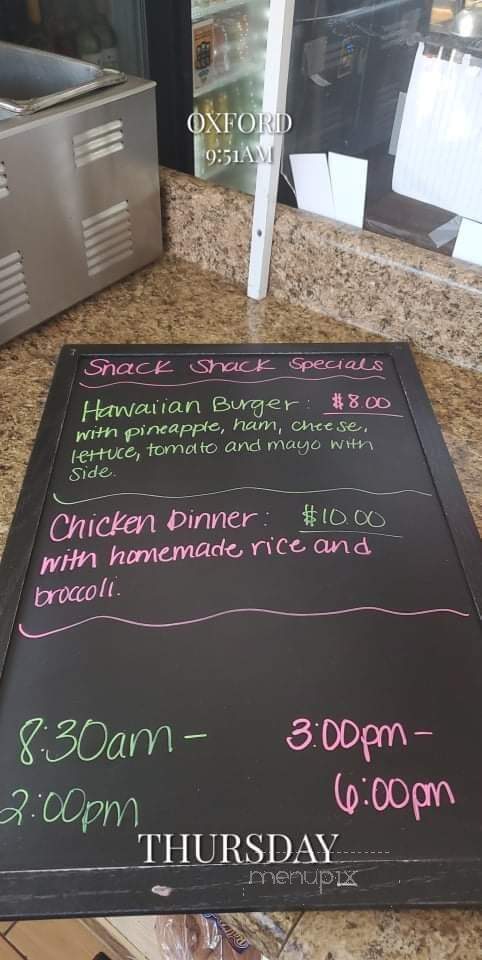 OXFORD
9:51AM
Snack Shack Specials
Hawaiian Burger: $8.00
with pineapple, ham, cheese,
lettuce, tomato and mayo with
Side.
Chicken Dinner: $10.00
with homemade rice and
broccoli.
8:30am - 3:00pm -
2:00pm 6:00pm
THURSDAY
menupix